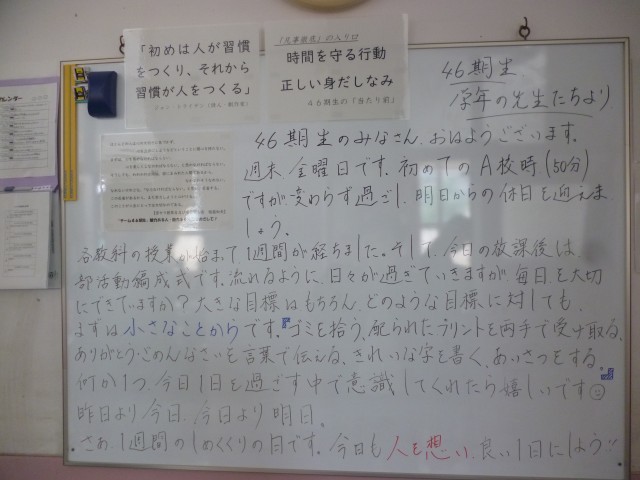 「初めは人が習慣
をつくり、それから
習慣が人をつくる」
ジョン・ドライデン（詩人・劇作家）
「凡事徹底」の入り口
時間を守る行動
正しい身だしなみ
４６期生の「当たり前」
46期生
学年の先生たちより
46期生のみなさん、おはようございます。
週末 金曜日です。初めてのA校時(50分)
ですが、変わらず過ごし、明日からの休日を迎えま
しょう。
各教科の授業が始まって、1週間が経ちました。そして、今日の放課後は、
部活動編成式です。流れるように、日々が過ぎていきますが、毎日を大切
にできていますか？大きな目標はもちろん、どのような目標に対しても、
まずは小さなことからです。『ゴミを拾う、配られたプリントを両手で受け取る、
ありがとう・ごめんなさいを言葉で伝える、きれいな字を書く、あいさつをする。』
何か1つ、今日1日を過ごす中で意識してくれたら嬉しいです
昨日より今日、今日より明日。
さあ、1週間のしめくくりの日です。今日も人を想い、良い1日にしよう!!